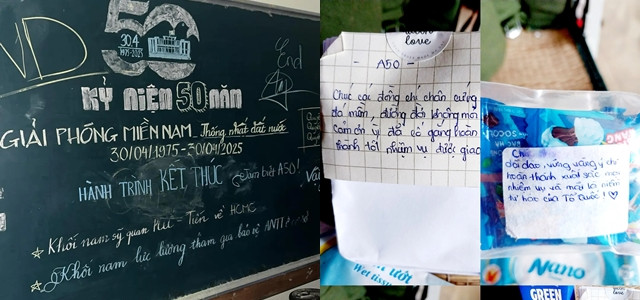 VD
50
30.4
1975-2025
End
KỶ NIỆM 50 NĂM
GIẢI PHÓNG MIỀN NAM, Thống nhất đất nước
30/04/1975 - 30/04/2025
HÀNH TRÌNH KẾT THÚC
Tạm biệt A50!
☆ Khối nam sỹ quan Tiến về HCMC
☆ Khối nam lực lượng tham gia bảo vệ ANTT
love
- A50 -
Chúc các đồng chí chân cứng
đá mềm, đường dài không mỏi
Cảm ơn vì đã cố gắng hoàn
thành tốt nhiệm vụ được giao
Chúc
dồi dào, vững vàng ý chí
hoàn thành xuất sắc mọi
nhiệm vụ và mãi là niềm
tự hào của Tổ Quốc! ♡
Nano
Wet tissue
GREEN